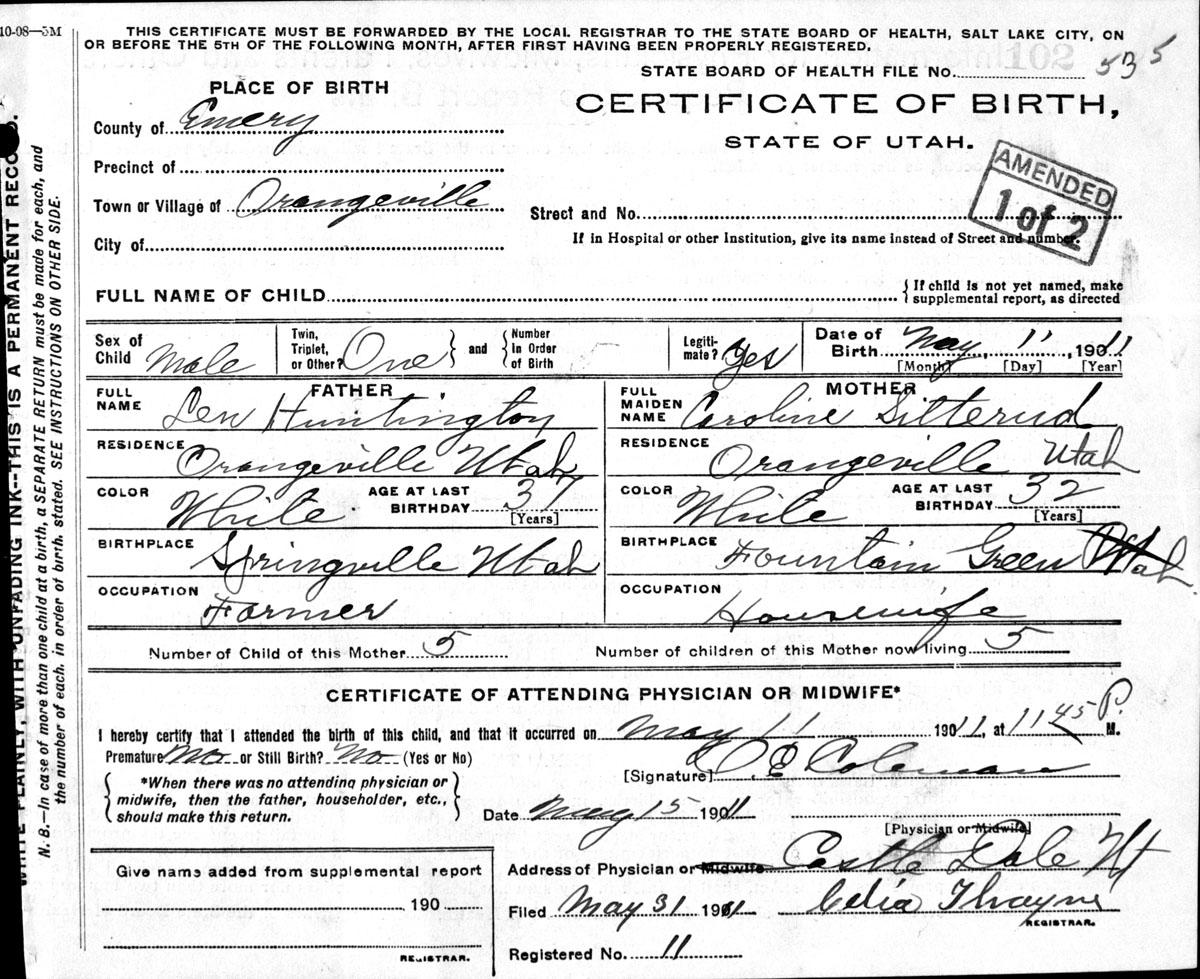 10-08—5M
THIS CERTIFICATE MUST BE FORWARDED BY THE LOCAL REGISTRAR TO THE STATE BOARD OF HEALTH, SALT LAKE CITY, ON
OR BEFORE THE 5TH OF THE FOLLOWING MONTH, AFTER FIRST HAVING BEEN PROPERLY REGISTERED.
STATE BOARD OF HEALTH FILE No. 535
PLACE OF BIRTH
CERTIFICATE OF BIRTH,
STATE OF UTAH.
County of Emery
Precinct of
Town or Village of Orangeville
City of
AMENDED
1 of 2
Street and No.
If in Hospital or other Institution, give its name instead of Street and number.
FULL NAME OF CHILD
{If child is not yet named, make
supplemental report, as directed
Sex of Child Male
Twin, Triplet, or Other? One } and { Number In Order of Birth
Legitimate? Yes
Date of Birth May 11, 1911
[Month] [Day] [Year]
FATHER
FULL NAME Len Huntington
RESIDENCE Orangeville Utah
COLOR White
AGE AT LAST BIRTHDAY 37
[Years]
BIRTHPLACE Springville Utah
OCCUPATION Farmer
MOTHER
FULL MAIDEN NAME Caroline Sitterud
RESIDENCE Orangeville Utah
COLOR White
AGE AT LAST BIRTHDAY 32
[Years]
BIRTHPLACE Fountain Green Utah
OCCUPATION Housewife
Number of Child of this Mother 5
Number of children of this Mother now living 5
CERTIFICATE OF ATTENDING PHYSICIAN OR MIDWIFE*
I hereby certify that I attended the birth of this child, and that it occurred on May 11 1911, at 11 45 P. M.
Premature No or Still Birth? No (Yes or No)
{ *When there was no attending physician or
midwife, then the father, householder, etc.,
should make this return. }
[Signature] E Coleman
Date May 15 1911
[Physician or Midwife]
Address of Physician or Midwife Castle Dale Ut
Filed May 31 1911 Celia Thayne
REGISTRAR.
Registered No. 11
Give name added from supplemental report
190
REGISTRAR.
WRITE PLAINLY, WITH UNFADING INK--THIS IS A PERMANENT
N. B.—In case of more than one child at a birth, a SEPARATE RETURN must be made for each, and
the number of each, in order of birth, stated. SEE INSTRUCTIONS ON OTHER SIDE.